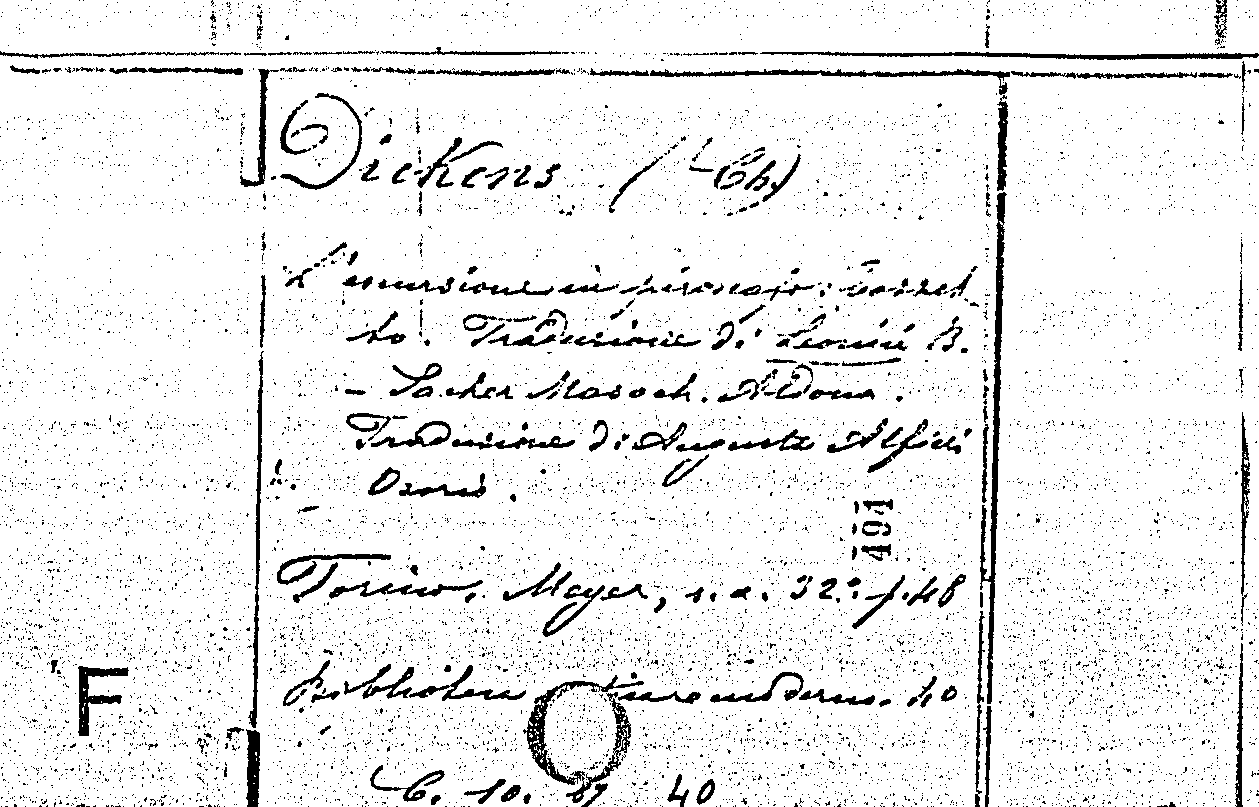 Dickens (Ch.)
L'escursione in piroscafo: bozzet
to. Traduzione di Leonini B.
- Sacher Masoch. Aldona.
Traduzione di Augusta Alfieri
Osorio.
491
Torino, Meyer, s.a. 32.° p. 48
Biblioteca 40
F
C. 10. 40